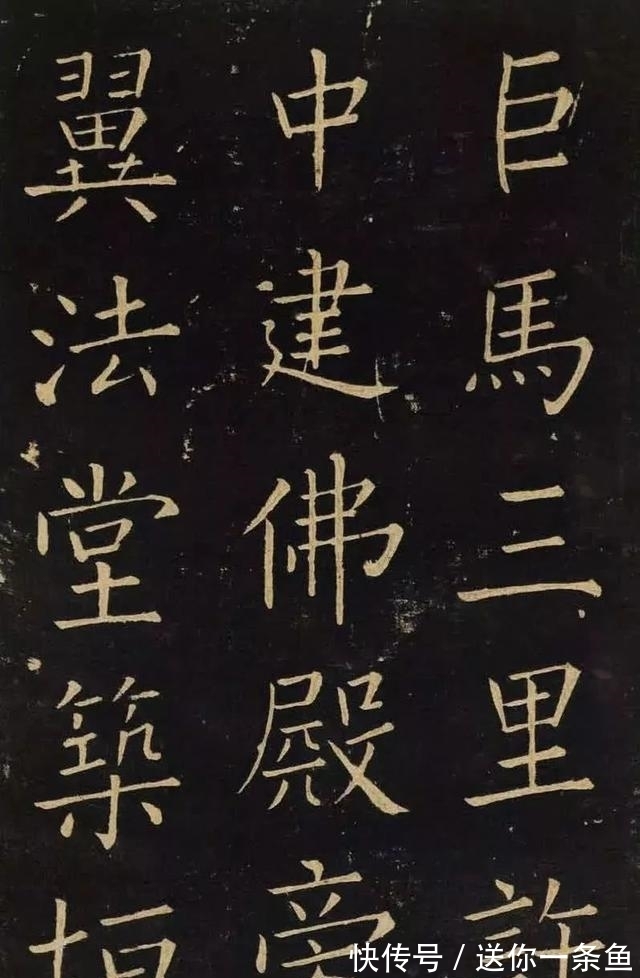 巨馬三里許
中建佛殿旁
翼法堂築垣
快传号 / 送你一条鱼